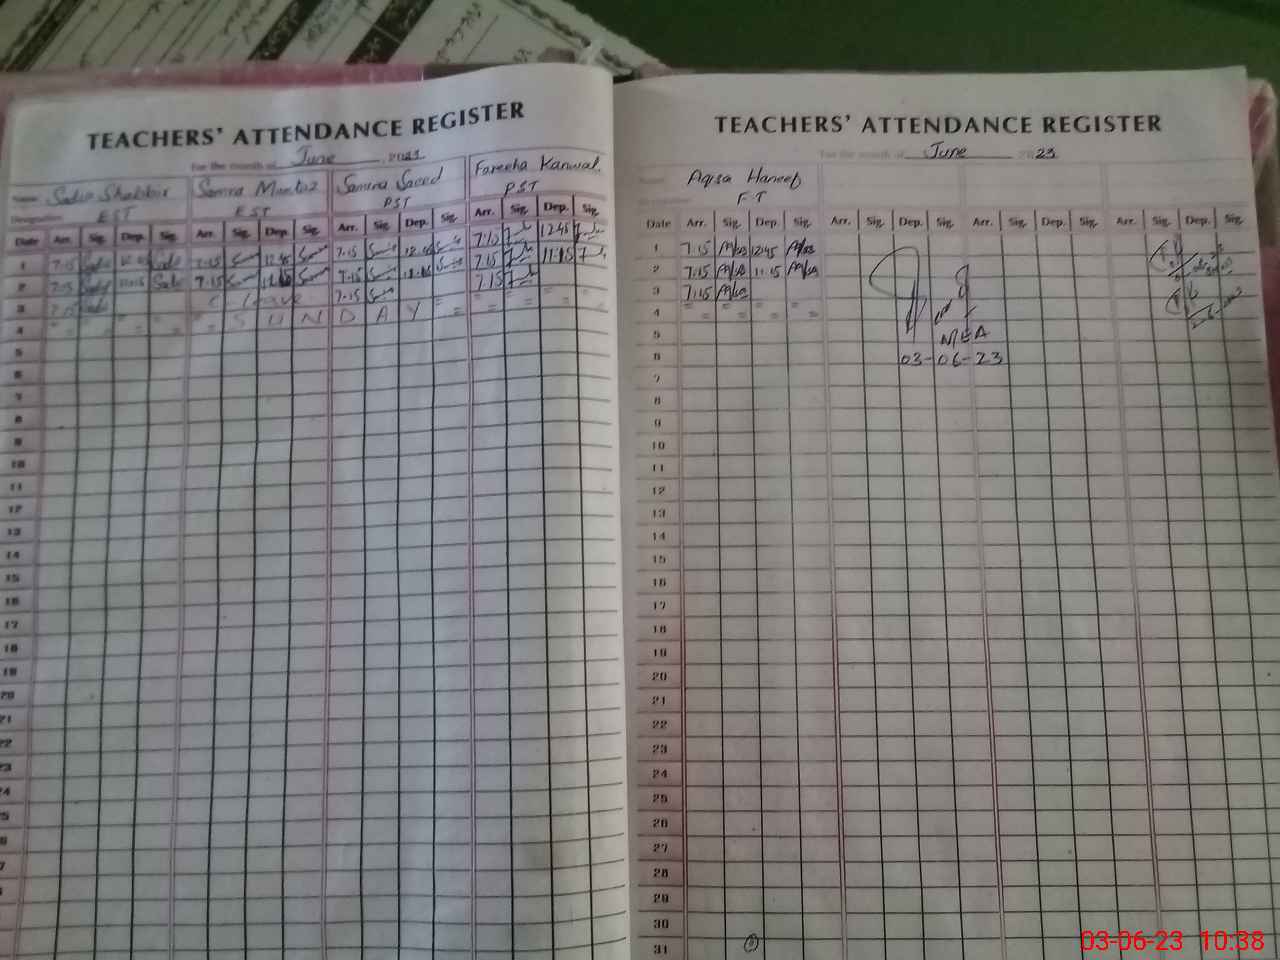 TEACHERS' ATTENDANCE REGISTER
For the month of June, 2023
Name Sadia Shabbir Samra Mumtaz Samra Saeed Fareeha Kanwal
Designation EST EST PST PST
Date Arr. Sig. Dep. Sig. Arr. Sig. Dep. Sig. Arr. Sig. Dep. Sig. Arr. Sig. Dep. Sig.
1 7:15 7:15 12:45 7:15 12:45 7:15 12:45
2 7:15 11:15 7:15 7:15 7:15 11:15
3 7:15 C. leave 7:15 7:15
4 " " = = " S U N D A Y = = = = =
5
6
7
8
9
10
11
12
13
14
15
16
17
18
19
20
21
22
23
24
25
TEACHERS' ATTENDANCE REGISTER
For the month of June 2023
Name Aqsa Haneef
Designation
Date Arr. Sig. Dep. Sig. Arr. Sig. Dep. Sig. Arr. Sig. Dep. Sig. Arr. Sig. Dep. Sig.
1 7:15 12:45
2 7:15 11:15
3 7:15
4 = = = =
5
MEA
6 03-06-23
7
8
9
10
11
12
13
14
15
16
17
18
19
20
21
22
23
24
25
26
27
28
29
30
31
03-06-23 10:38